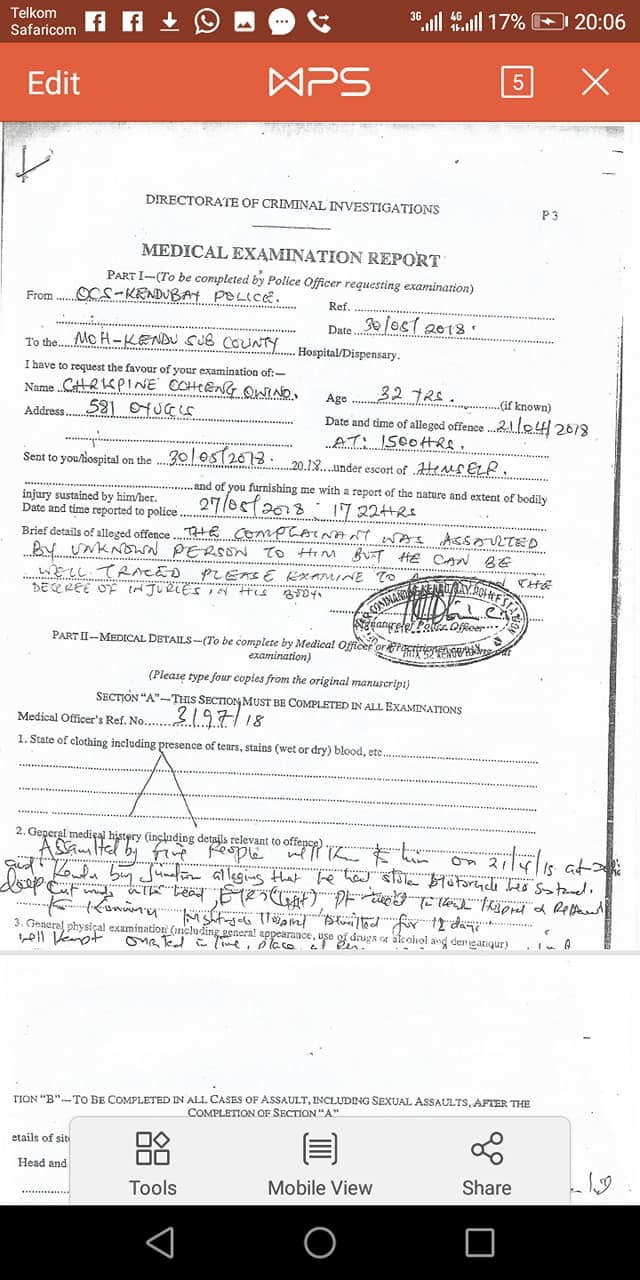 Telkom
Safaricom
3G 4G 17% 20:06
Edit WPS 5
DIRECTORATE OF CRIMINAL INVESTIGATIONS
P 3
MEDICAL EXAMINATION REPORT
PART I—(To be completed by Police Officer requesting examination)
From OCS-KENDUBAY POLICE. Ref.
Date 30/05/2018.
To the MOH-KENDU SUB COUNTY Hospital/Dispensary.
I have to request the favour of your examination of:—
Name CHRISPINE OCHIENG OWINO, Age 32 YRS. (if known)
Address 581 OYUGIS Date and time of alleged offence 21/04/2018
AT: 1500HRS.
Sent to you/hospital on the 30/05/2018. 2018 under escort of HIMSELF.
and of you furnishing me with a report of the nature and extent of bodily
injury sustained by him/her.
Date and time reported to police 27/05/2018: 1722HRS
Brief details of alleged offence THE COMPLAINANT WAS ASSAULTED
BY UNKNOWN PERSON TO HIM BUT HE CAN BE
WELL TRACED PLEASE EXAMINE TO THE
DEGREE OF INJURIES IN HIS BODY.
Signature of Police Officer
PART II—MEDICAL DETAILS—(To be complete by Medical Officer or Practitioner carrying out
examination)
(Please type four copies from the original manuscript)
SECTION "A"—THIS SECTION MUST BE COMPLETED IN ALL EXAMINATIONS
Medical Officer's Ref. No. 3197/18
1. State of clothing including presence of tears, stains (wet or dry) blood, etc
2. General medical history (including details relevant to offence)
Assaulted by five people well known to him on 21/4/18 at
Kendu bay junction alleging that he had stolen Motorcycle
deep cut head, Pt
for 12 days
3. General physical examination (including general appearance, use of drugs or alcohol and demeanour)
well kempt oriented in time, place
TION "B"—TO BE COMPLETED IN ALL CASES OF ASSAULT, INCLUDING SEXUAL ASSAULTS, AFTER THE
COMPLETION OF SECTION "A"
etails of sit
Head and
Tools Mobile View Share